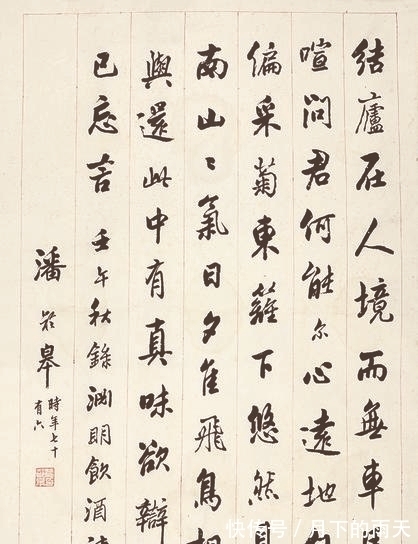 結廬在人境而無車
喧問君何能尔心遠地
偏采菊東籬下悠然
南山々氣日夕佳飛鳥相
與還此中有真味欲辯
已忘言 壬午秋錄淵明飲酒詩
潘齡皋
時年七十
有六
快传号/月下的雨天